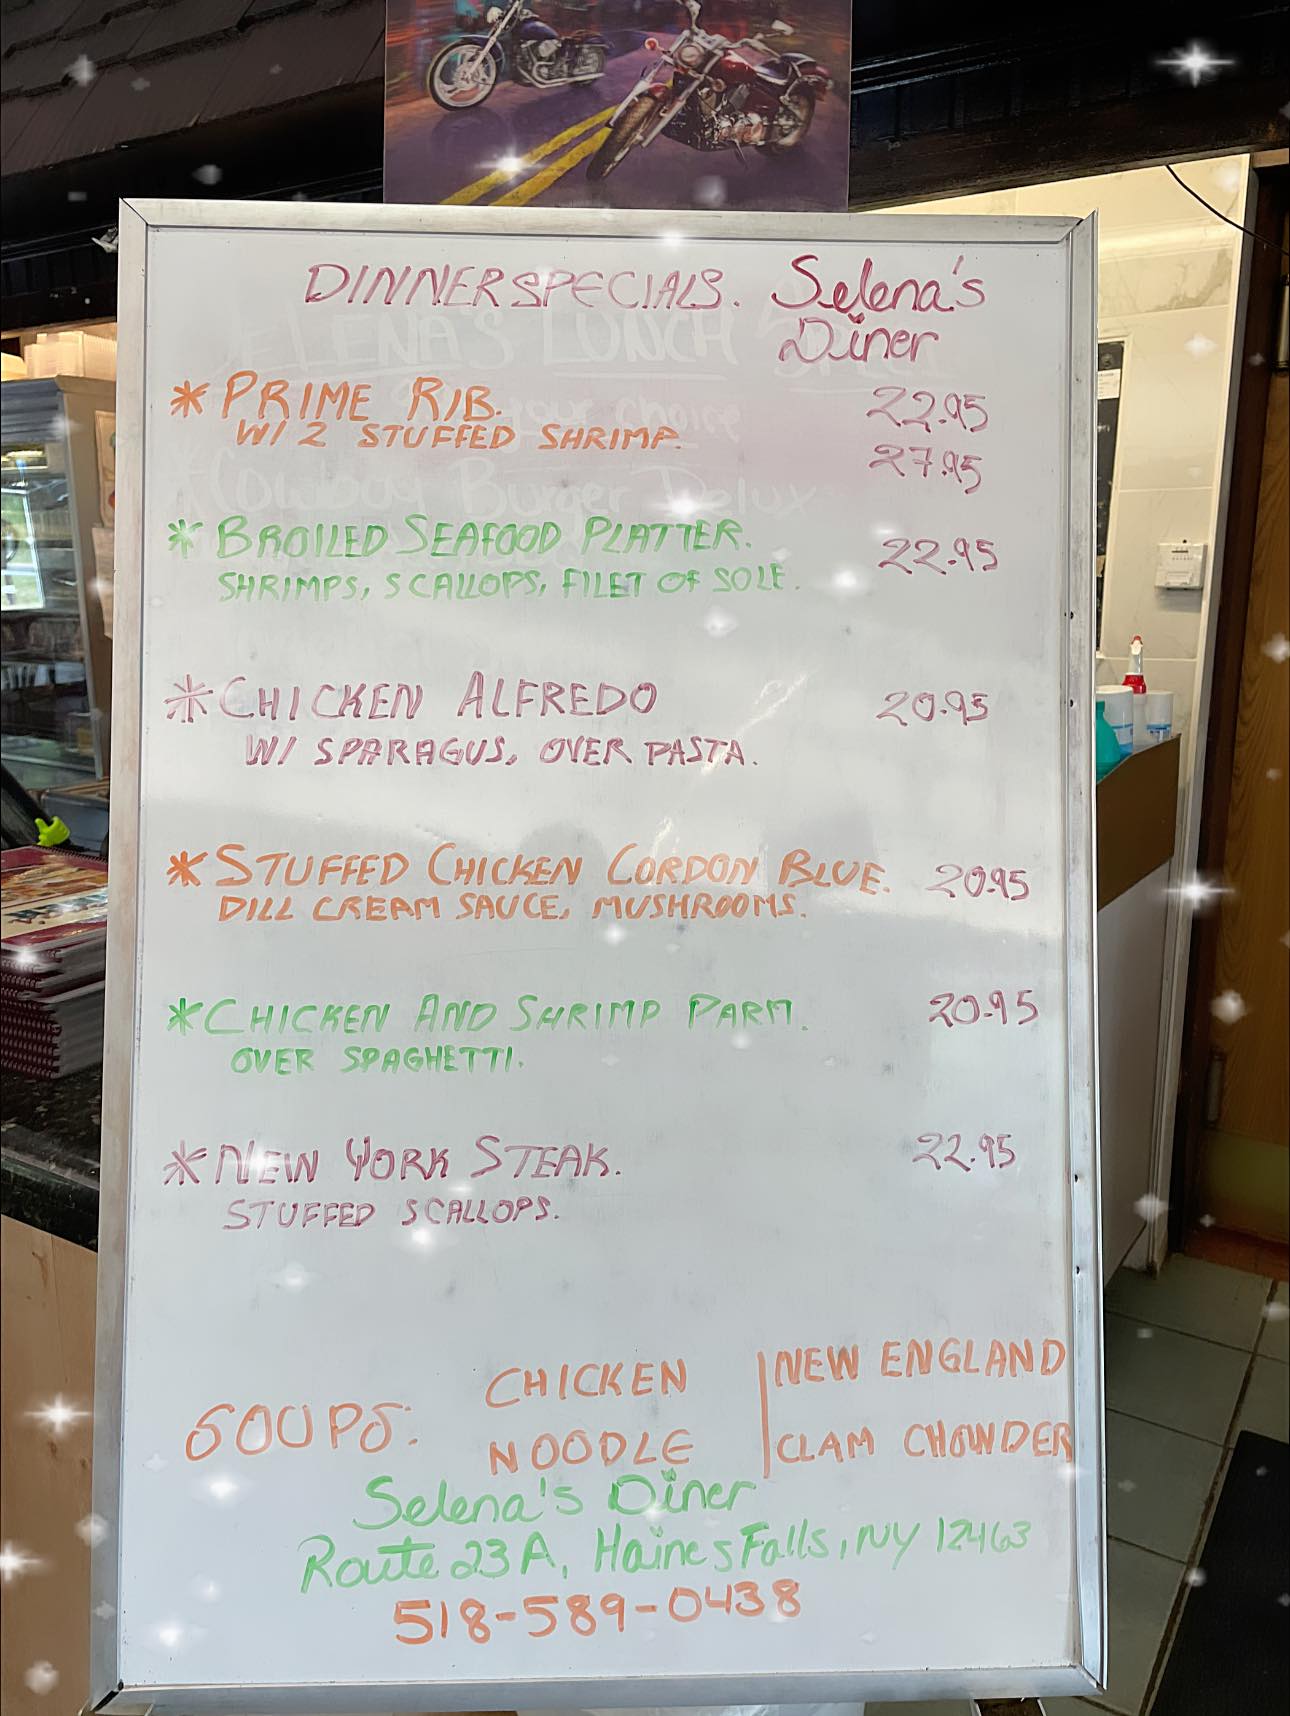 DINNER SPECIALS. Selena's
Diner
* PRIME RIB. 22.95
W/ 2 STUFFED SHRIMP. 27.95
* BROILED SEAFOOD PLATTER. 22.95
SHRIMPS, SCALLOPS, FILET OF SOLE.
* CHICKEN ALFREDO 20.95
W/ SPARAGUS, OVER PASTA.
* STUFFED CHICKEN CORDON BLUE. 20.95
DILL CREAM SAUCE, MUSHROOMS.
* CHICKEN AND SHRIMP PARM. 20.95
OVER SPAGHETTI.
* NEW YORK STEAK. 22.95
STUFFED SCALLOPS.
SOUPS: CHICKEN NOODLE | NEW ENGLAND CLAM CHOWDER
Selena's Diner
Route 23A, Haines Falls, NY 12463
518-589-0438